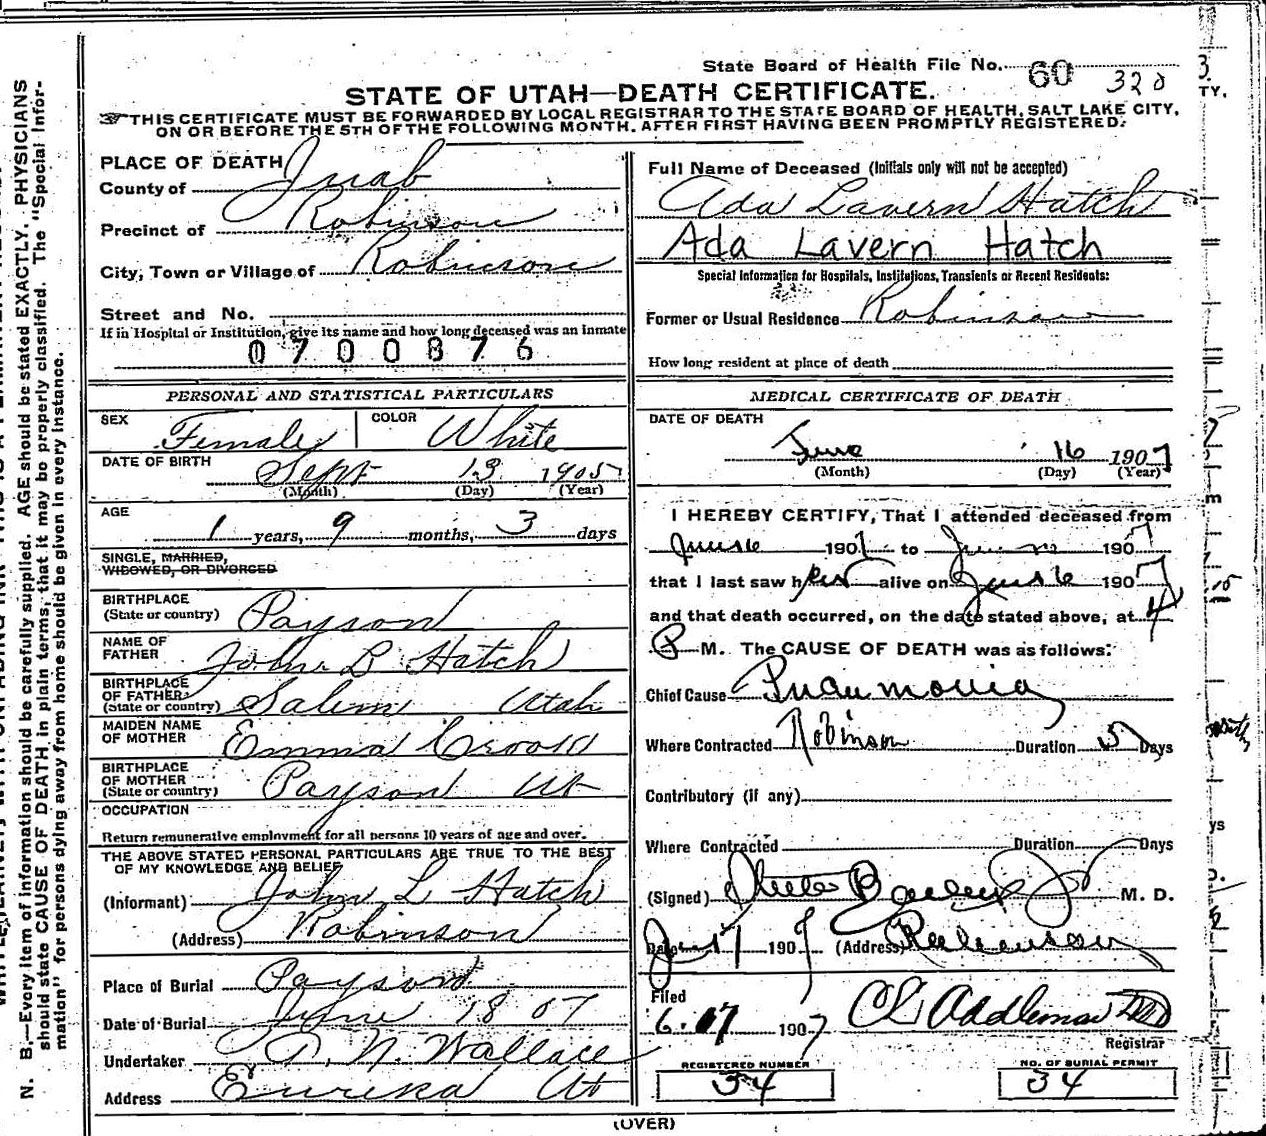 State Board of Health File No. 60 320
STATE OF UTAH—DEATH CERTIFICATE.
THIS CERTIFICATE MUST BE FORWARDED BY LOCAL REGISTRAR TO THE STATE BOARD OF HEALTH, SALT LAKE CITY,
ON OR BEFORE THE 5TH OF THE FOLLOWING MONTH, AFTER FIRST HAVING BEEN PROMPTLY REGISTERED.
PLACE OF DEATH
County of Juab
Precinct of Robinson
City, Town or Village of Robinson
Street and No.
If in Hospital or Institution, give its name and how long deceased was an inmate
0700876
Full Name of Deceased (Initials only will not be accepted)
Ada Lavern Hatch
Ada Lavern Hatch
Special Information for Hospitals, Institutions, Transients or Recent Residents:
Former or Usual Residence Robinson
How long resident at place of death
PERSONAL AND STATISTICAL PARTICULARS
SEX Female COLOR White
DATE OF BIRTH Sept 13 1905
(Month) (Day) (Year)
AGE 1 years, 9 months, 3 days
SINGLE, MARRIED,
WIDOWED, OR DIVORCED
BIRTHPLACE
(State or country) Payson
NAME OF
FATHER John L Hatch
BIRTHPLACE
OF FATHER
(State or country) Salem Utah
MAIDEN NAME
OF MOTHER Emma Crook
BIRTHPLACE
OF MOTHER
(State or country) Payson Ut
OCCUPATION
Return remunerative employment for all persons 10 years of age and over.
THE ABOVE STATED PERSONAL PARTICULARS ARE TRUE TO THE BEST
OF MY KNOWLEDGE AND BELIEF
(Informant) John L Hatch
(Address) Robinson
Place of Burial Payson
Date of Burial June 18 07
Undertaker D. N. Wallace
Address Eureka Ut
MEDICAL CERTIFICATE OF DEATH
DATE OF DEATH
June 16 1907
(Month) (Day) (Year)
I HEREBY CERTIFY, That I attended deceased from
1907 to 1907
that I last saw her alive on June 16 1907
and that death occurred, on the date stated above, at 4
P M. The CAUSE OF DEATH was as follows:
Chief Cause Pnaumonia
Where Contracted Robinson Duration 5 Days
Contributory (if any)
Where Contracted Duration Days
(Signed) M. D.
190 (Address) Robinson
Filed
6.17 1907 Addleman MD
Registrar
REGISTERED NUMBER
34
NO. OF BURIAL PERMIT
34
(OVER)
N. B.—Every item of information should be carefully supplied. AGE should be stated EXACTLY. PHYSICIANS
should state CAUSE OF DEATH in plain terms, that it may be properly classified. The "Special Infor-
mation" for persons dying away from home should be given in every instance.